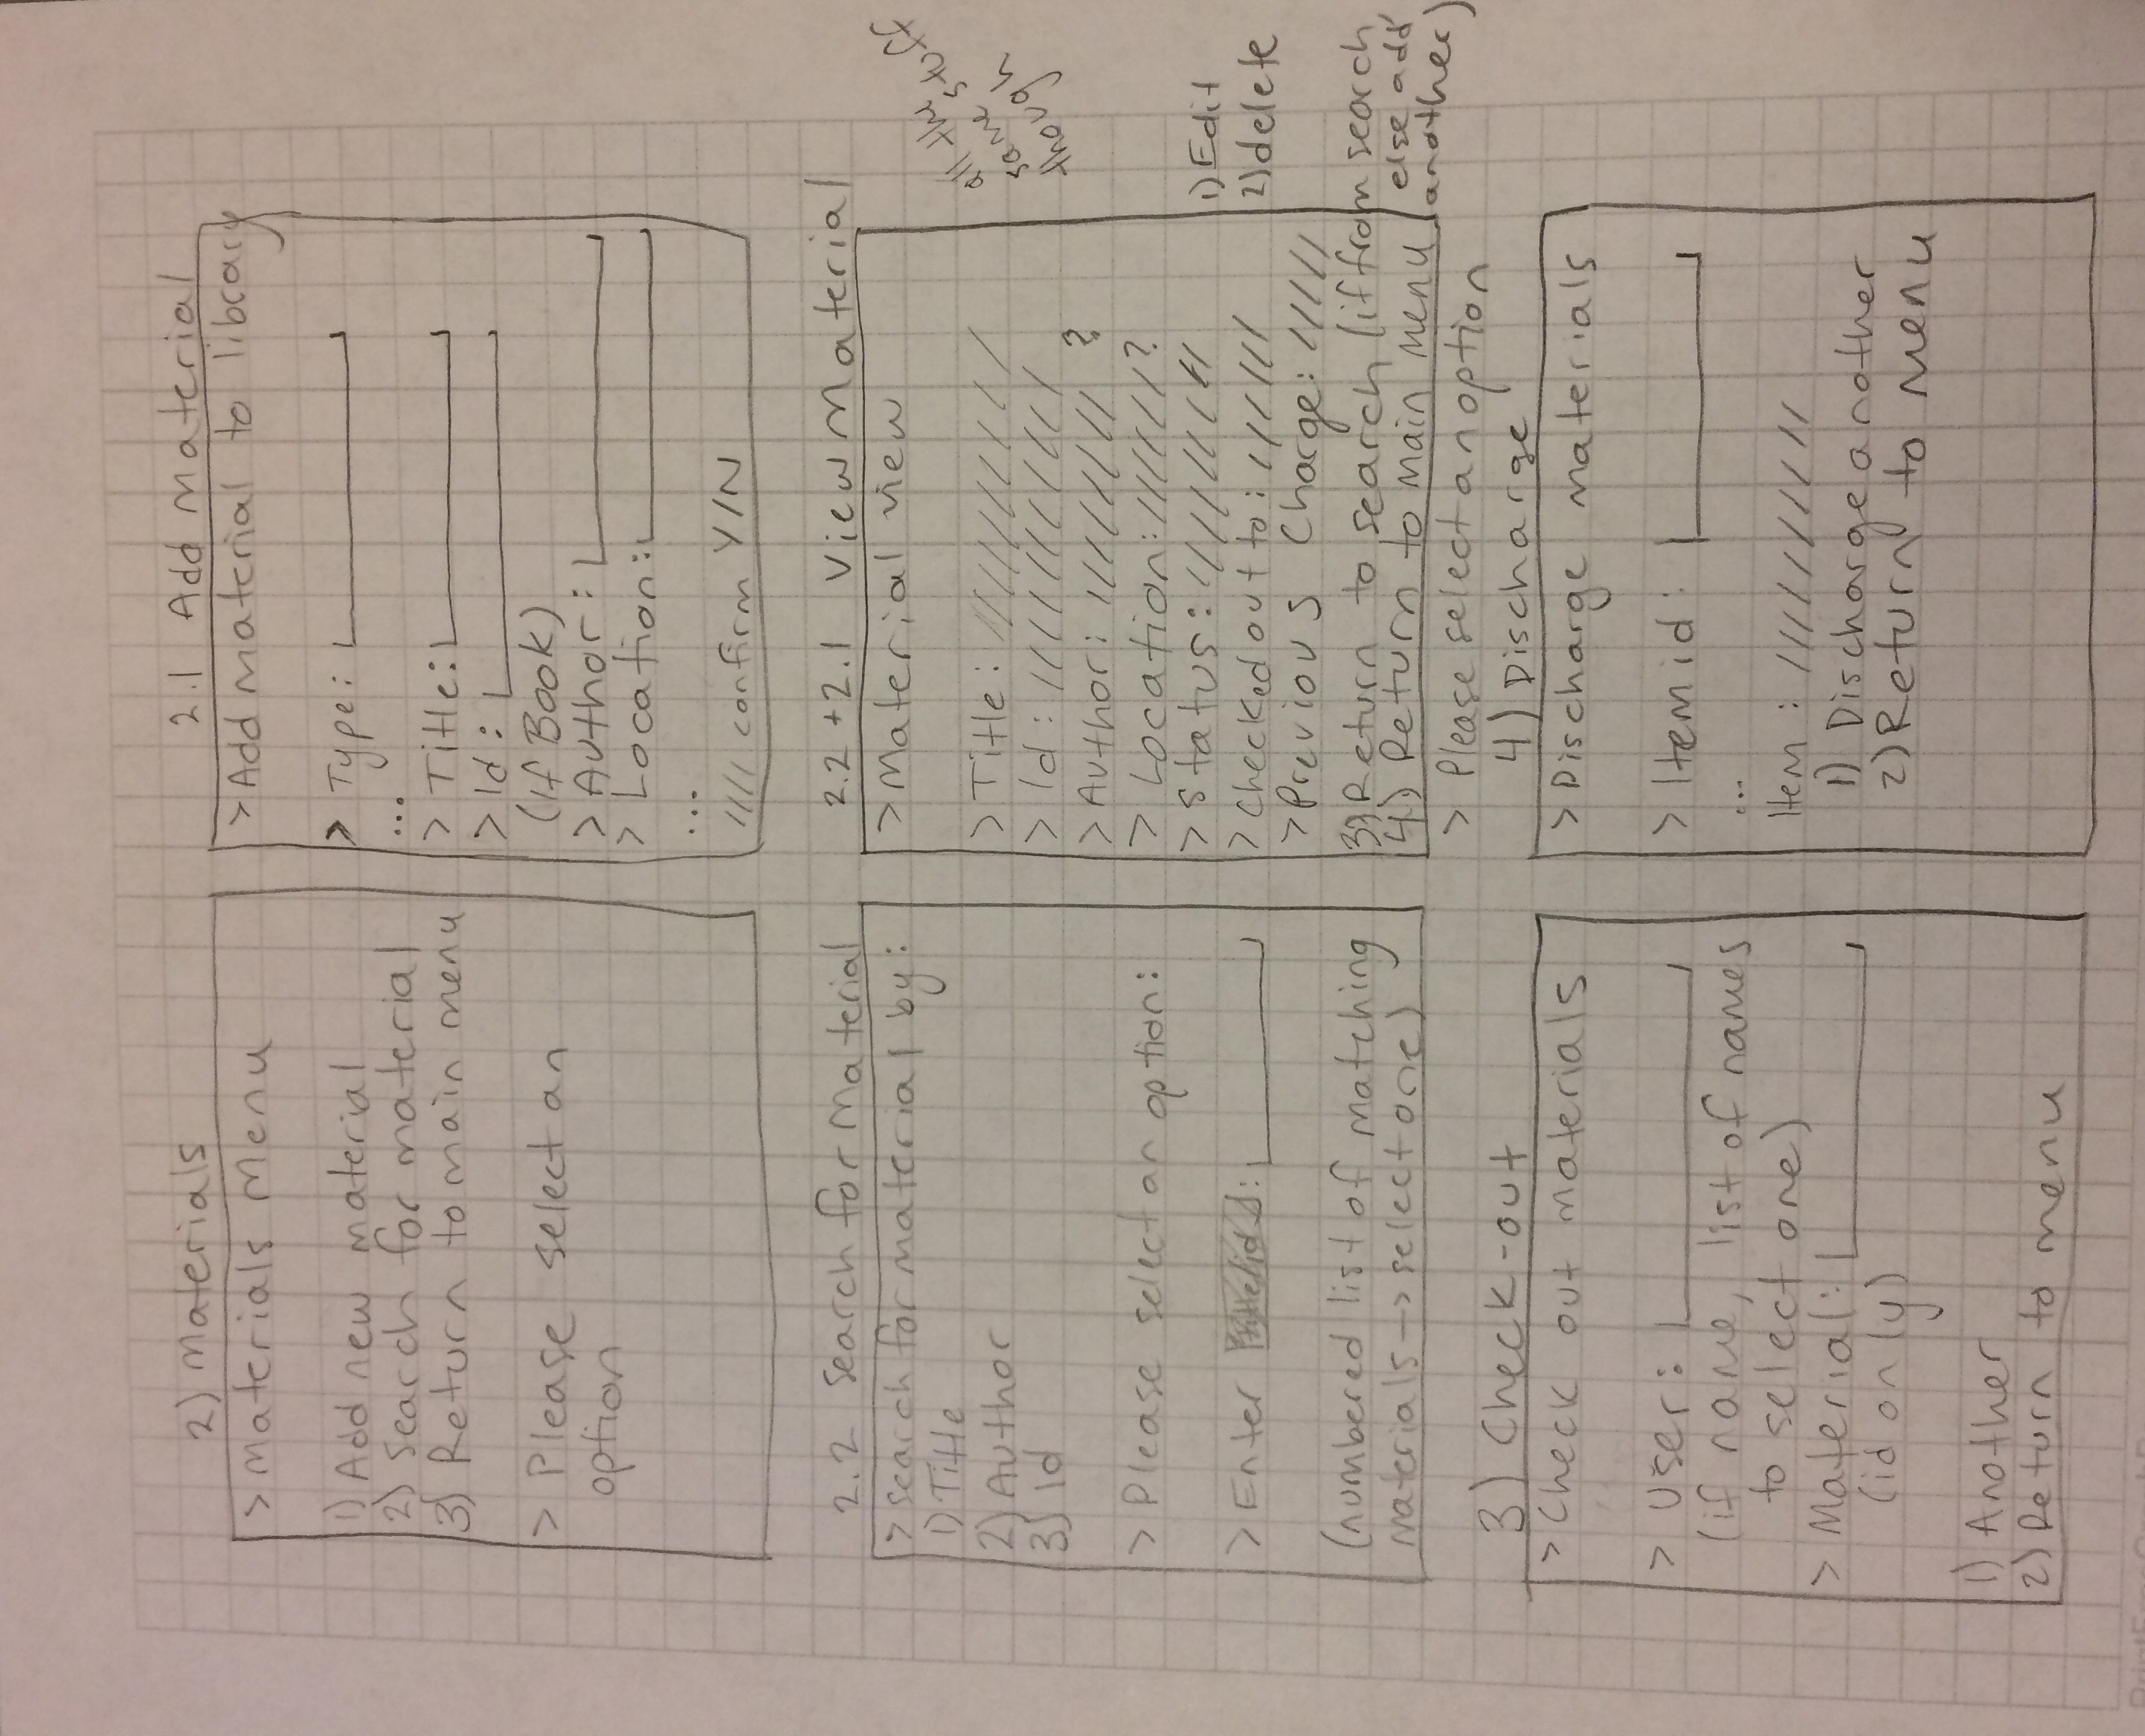 2) Materials
> Materials Menu
1) Add new material
2) Search for material
3) Return to main menu
> Please select an
option
2.1 Add Material
> Add material to library
> Type:
...
> Title:
> Id:
(if Book)
> Author:
> Location:
...
//// confirm Y/N
2.2 Search for Material
> Search for material by:
1) Title
2) Author
3) Id
> Please select an option:
> Enter :
(numbered list of matching
materials -> select one)
2.2 + 2.1 View Material
> Material view
> Title: //////////
> Id: ////////////
> Author: //////// ?
> Location: /////// ?
> Status: /////////
> Checked out to: //////
> Previous Charge: /////
3) Return to search (if from search,
else add
another)
4) Return to main menu
> Please select an option
all the
same stuff
though
1) Edit
2) delete
3) Check-out
> Check out materials
> User:
(if name, list of names
to select one)
> Material:
(id only)
1) Another
2) Return to menu
4) Discharge
> Discharge materials
> Item id:
...
Item: //////////
1) Discharge another
2) Return to menu